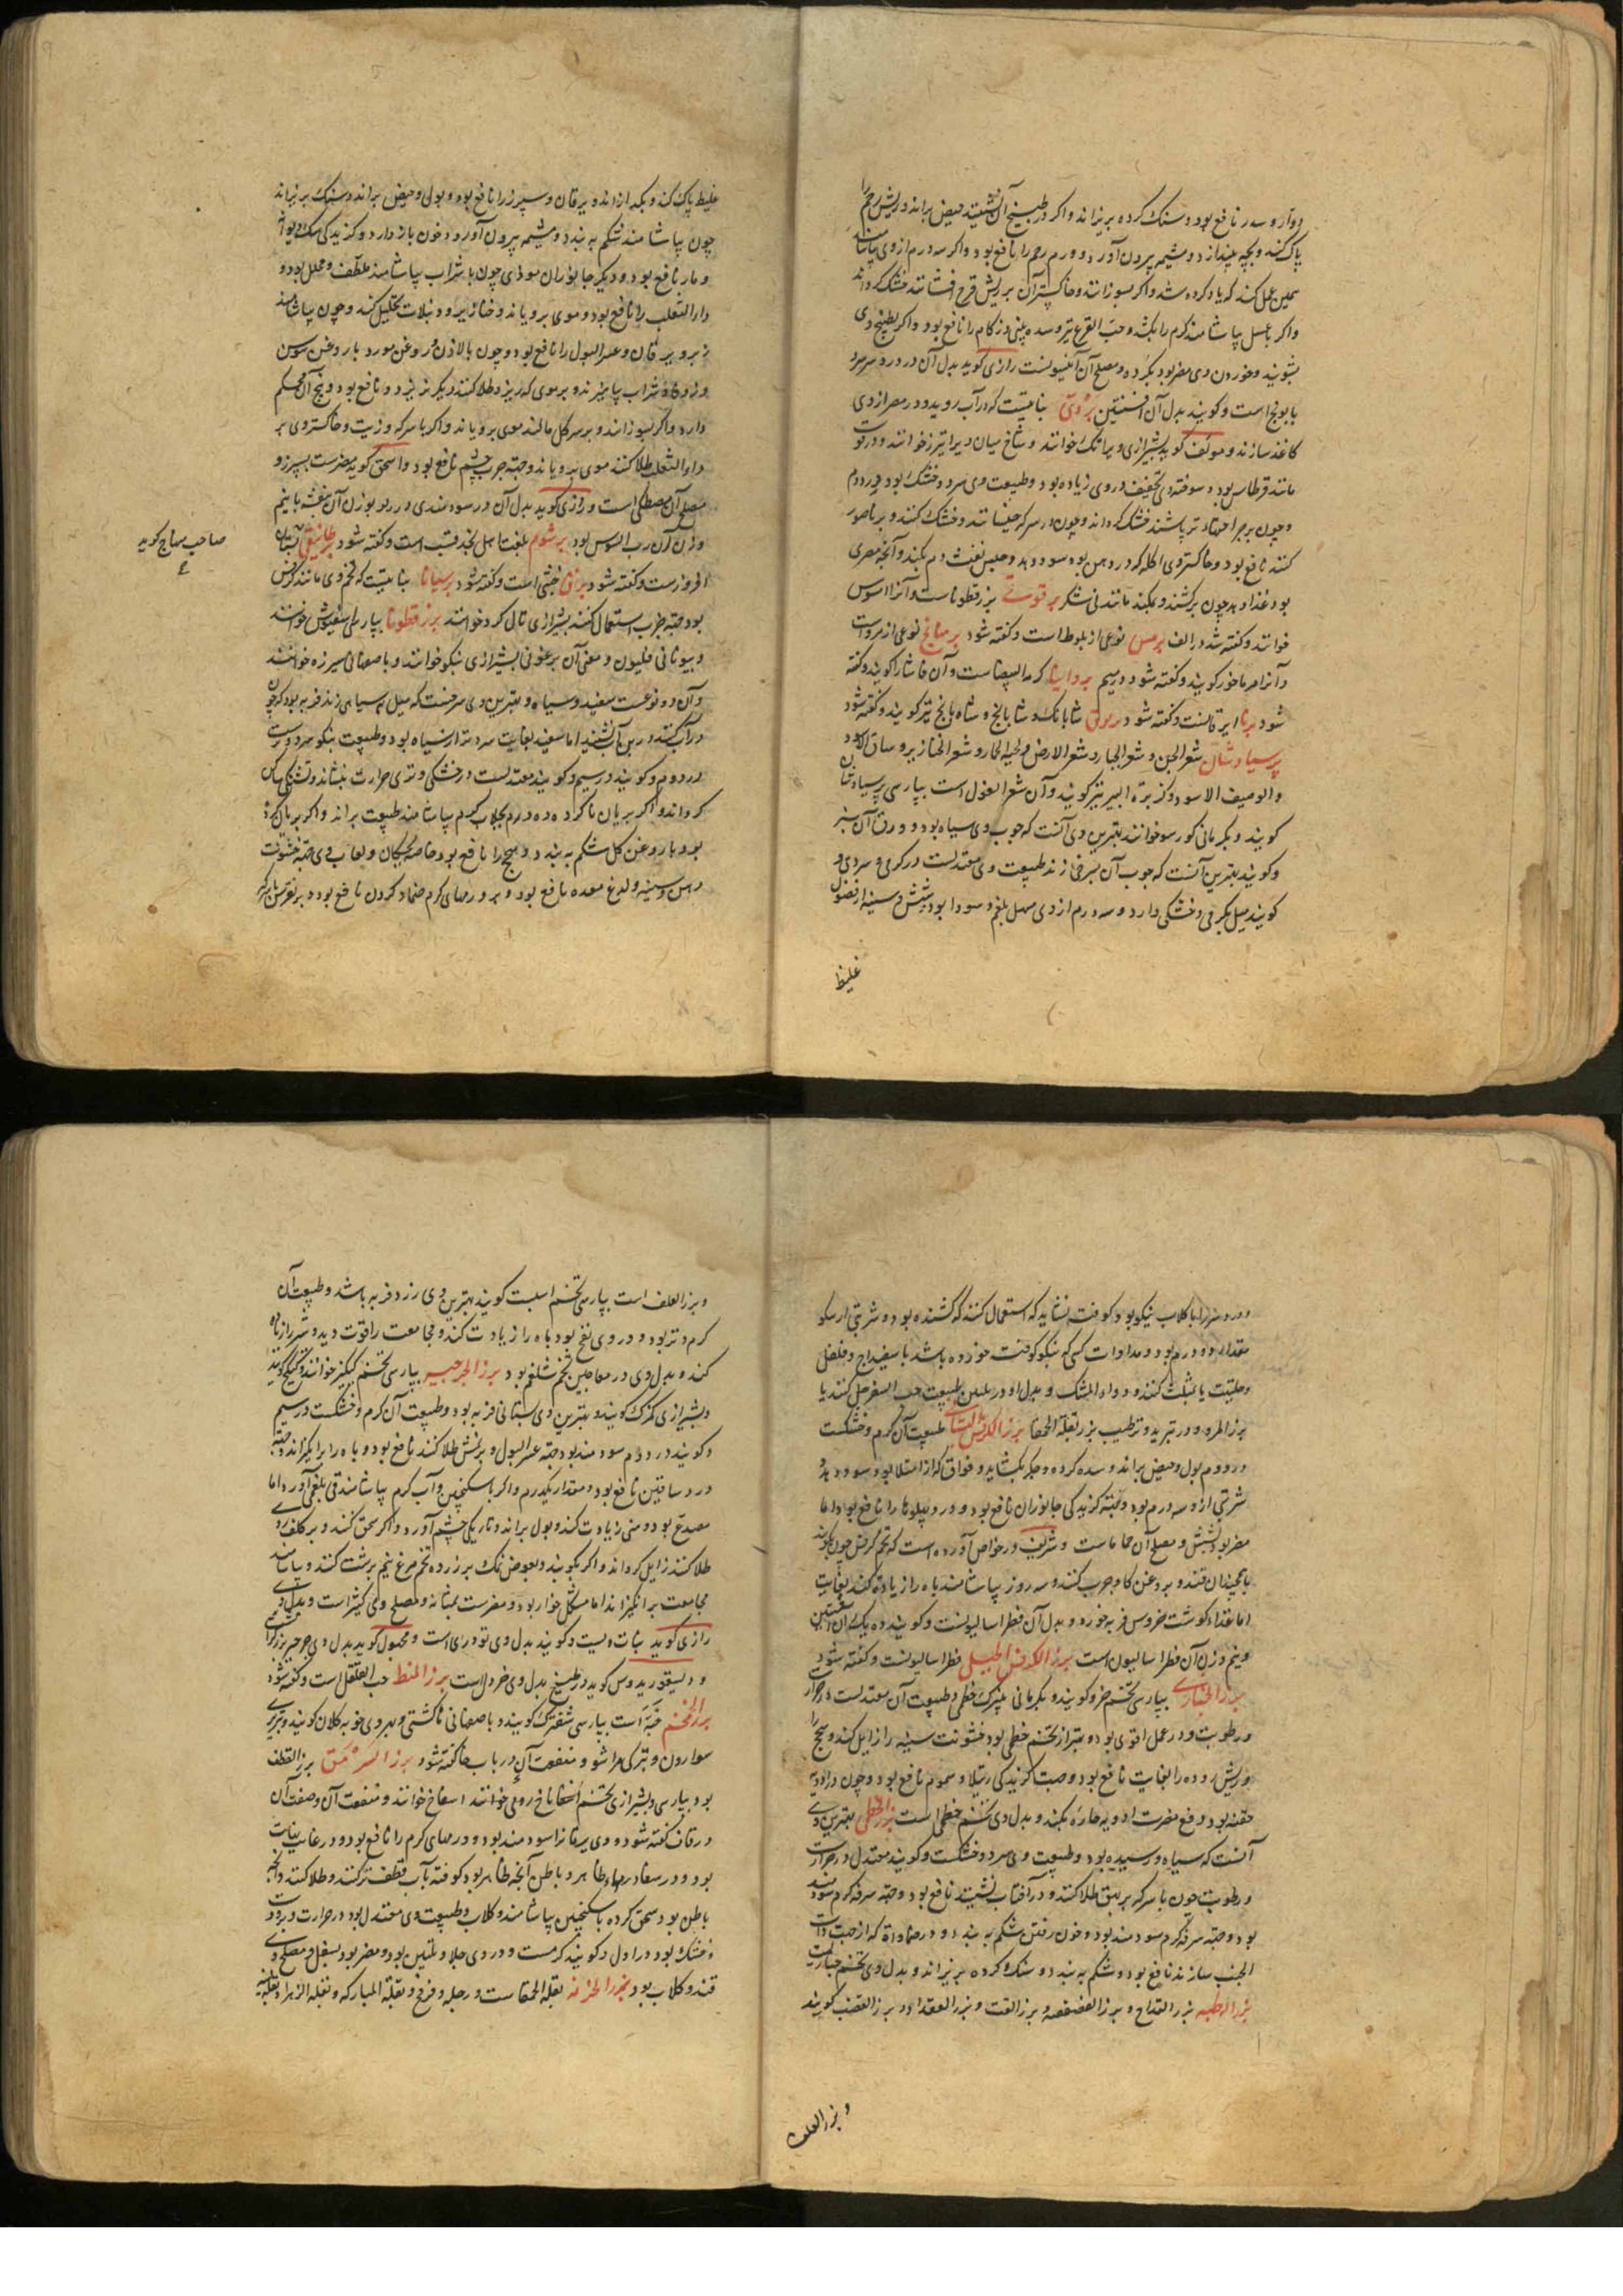 دوار و سدر نافع بود و سنک کرده بریزاند و اکر در طبیخ آن نشیند حیض براند و ریش رحم را
پاک کند و بچه بیندازد و مشیمه بیرون آورد و ورم رحم را نافع بود و اکر سه درم از وی بیاشامند
همین عمل کند که یاد کرده شد و اکر بسوزانند و خاکستر آن بر ریش قرح افشانند خشک کرداند
و اکر با عسل بیاشامند کرم را بکشد و حب القرع نیز و سده بینی و زکام را نافع بود و اکر بطبیخ وی
بشویند و خوردن وی مضر بود بکرده و مصلح آن انیسونست رازی کوید بدل آن در درد سر سرد
بابونج است و کویند بدل آن افسنتین بردی نباتیست که در آب روید و در مصر از وی
کاغذ سازند و مولف کوید بشیرازی ویرا تک خوانند و شاخ میان ویرا تیزر خوانند و در قوت
مانند قرطاس بود و سوخته وی تجفیف در وی زیاده بود و طبیعت وی سرد و خشک بود در دوم
و چون بر جراحتهاء تر پاشند خشک کرداند و چون در سرکه خیسانند و خشک کنند و بر ناصور
کنند نافع بود و خاکستر وی اکله که در دهن بود سود دهد و حبس نفث دم بکند و آنچه مصری
بود غذا دهد چون بر کشند و بمکند مانند نی شکر برقوتی بزر قطوناست و آنرا اسوس
خوانند و کفته شد در الف برمس نوعی از بلوط است و کفته شود برمانج نوعی از مرو است
و آنرا مرماخور کویند و کفته شود در میم بروانیا کرمة البیضاست و آن فاشرا کویند و کفته
شود برنا ایرقانست و کفته شود بربوق شابانک و شابانج و شاه بانج نیز کویند و کفته شود
پرسیاوشان شعر الجن و شعر الجبار و شعر الارض و لحیة الحمار و شعر الخنازیر و ساق الاسود
و الوصیف الاسود و کزبرة البیر نیز کویند و آن شعر الغول است بپارسی پرسیاوشان
کویند و بکرمانی کورسو خوانند بهترین وی آنست که چوب وی سیاه بود و ورق آن سبز
و کویند بهترین آنست که چوب آن بسرخی زند طبیعت وی معتدلست در کرمی و سردی و
کویند میل بکرمی و خشکی دارد و سه درم از وی مسهل بلغم و سودا بود و شش و سینه از فضول
غلیظ
غلیظ پاک کند و بکدازاند و یرقان و سپرز را نافع بود و بول و حیض براند و سنک بریزاند
چون بیاشامند شکم به بندد و مشیمه بیرون آورد و خون باز دارد و کزیدکی سک دیوانه
و مار نافع بود و دیکر جانوران موذی چون با شراب بیاشامند ملطف و محلل بود و
داء الثعلب را نافع بود و موی برویاند و خنازیر و دبیلات تحلیل کند و چون بیاشامند
ربو و یرقان و عسر البول را نافع بود و چون با لاذن و روغن مورد یا روغن سوسن
و زوفا و شراب بیامیزند و بر موی که ریزد طلا کنند دیکر نریزد و نافع بود و بیخ آن محکم
دارد و اکر بسوزانند و بر سر کل مالند موی برویاند و اکر با سرکه و زیت و خاکستر وی بر
داء الثعلب طلا کنند موی برویاند و جهة جرب چشم نافع بود و اسحق کوید مضرست بسپرز و
مصلح آن مصطکی است و رازی کوید بدل آن در سودمندی در ربو بوزن آن بنفشه با نیم
وزن آن رب السوس بود برشوم بلغت اهل نجد قسب است و کفته شود برطانیقی بستان
افروزست و کفته شود بزاق خیشی است و کفته شود برسیانا نباتیست که تخم وی مانند کرفس
بود و جهة جرب استعمال کنند بشیرازی تال کرد خوانند بزر قطونا بپارسی اسفیوش خوانند
و بیونانی فسلیون و معنی آن برغوثی بشیرازی بنکو خوانند و باصفهانی اسپرزه خوانند
و آن دو نوعست سفید و سیاه و بهترین وی سرخست که میل بسیاهی زند فربه بود که چون
در آب کنند در بن آب نشیند اما سفید بغایت سردتر از سیاه بود و طبیعت بنکو سرد و ترست
در دوم و کویند در سیم و کویند معتدلست در خشکی و تری حرارت بنشاند و تشنکی ساکن
کرداند و اکر بریان ناکرده ده درم بجلاب کرم بیاشامند طبیعت براند و اکر بریان کرده
بود با روغن کل شکم به بندد و سحج را نافع بود خاصه کودکان و لعاب وی جهة خشونت
دهن و سینه و لدغ معده نافع بود و بر ورمهای کرم ضماد کردن نافع بود و بر نقرس با سرکه
صاحب منهاج کوید
و درد سر را با کلاب نیکو بود کوفته نشاید که استعمال کنند که کشنده بود و شربتی از نیکو
مقدار دو درم بود و مداوات کسی که بنکو کوفته خورده باشد با سفیداج و فلفل
و حلتیت یا بمثلث کنند و دواء المشک و بدل او در تلیین طبیعت حب السفرجل کنند یا
بزر المرو و در تبرید و ترطیب بزر بقلة الحمقا بزر الکرفس البستانی طبیعت آن کرم و خشکست
در دوم بول و حیض براند و سده کرده و جکر بکشاید و فواق که از امتلا بود سود دهد و
شربتی ازو سه درم بود و جهة کزیدکی جانوران نافع بود و درد پهلوها را نافع بود اما
مضر بود بشش و مصلح آن حماماست و شریف در خواص آورده است که تخم کرفس چون بکوبند
با همچندان قند و بروغن کاو چرب کنند و سه روز بیاشامند باه را زیادة کند بغایت
اما غذاء کوشت خروس فربه خورد و بدل آن فطراسالیونست و کویند ده یک آن افسنتین
و نیم وزن آن فطراسالیون است بزر الکرفس الجبلی فطراسالیونست و کفته شود
بزر الخبازی بپارسی تخم خرو کویند و بکرمانی پنیرک خطمی و طبیعت آن معتدلست در حرارت
و رطوبت و در عمل اقوی بود و بهتر از تخم خطمی بود خشونت سینه را زایل کند و سحج را
و ریش روده را بغایت نافع بود و جهت کزیدکی رتیلا و سموم نافع بود و چون در ادویه
حقنه بود دفع مضرت ادویه حاره بکند و بدل وی تخم خطمی است بزر الخطمی بهترین وی
آنست که سیاه و رسیده بود و طبیعت وی سرد و خشکست و کویند معتدل در حرارت
و رطوبت چون با سرکه بر بهق طلا کنند و در آفتاب نشینند نافع بود و جهة سرفه کرم سودمند
بود و جهة سرفه کرم سودمند بود و خون رفتن شکم به بندد و در ضماداة که از جهت ذات
الجنب سازند نافع بود و شکم به بندد و سنک کرده بریزاند و بدل وی تخم خبازیست
بزر الرطبه بزر القداح و بزر الفصفصه و بزر القت و بزر العقد او و بزر القضب کویند
و بزر العلف
و بزر العلف است بپارسی تخم اسبست کویند بهترین وی زرد و فربه باشد و طبیعت آن
کرم و تر بود و در وی نفخ بود باه را زیادت کند و مجامعت را قوت دهد و شیر را زیاده
کند و بدل وی در معاجین تخم شلغم بود بزر الجرجیر بپارسی تخم کیکیز خوانند و کیکیج کویند
و بشیرازی کهزک کویند و بهترین وی بستانی فربه بود و طبیعت آن کرم و خشکست در سیم
و کویند در دوم سودمند بود جهة عسر البول و بر نمش طلا کنند نافع بود و باه را برانکیزاند و جهة
درد ساقین نافع بود و مقدار یکدرم و اکر با سکنجبین و آب کرم بیاشامند قی بلغمی آورد اما
مصدع بود و منی زیادت کند و بول براند و تاریکی چشم آورد و اکر سحق کنند و بر کلف روی
طلا کنند زایل کرداند و اکر بکوبند و بعوض نمک بر زرده تخم مرغ نیم برشت کنند و بیاشامند
مجامعت برانکیزاند اما مشکل خوار بود و مضرست بمثانه و مصلح وی کتیراست و بدل وی
رازی کوید بنات ویست و کویند بدل وی تودری است و مجهول کوید بدل وی جرجیر بزر کراث
و دیسقوریدوس کوید در طبیخ بدل وی خردل است بزر المنط حب القلقل است و کفته شود
بزر الخمخم خبه است بپارسی شفترک کویند و باصفهانی خاکشی و بهروی خوبه کلان کویند و تبریزی
سوارون و بترکی مراشو و منفعت آن در باب خا کفته شود بزر السرمق بزر القطف
بود بپارسی و بشیرازی تخم اسفاناخ رومی خوانند اسفاخ خوانند و منفعت آن و صفت آن
در قاف کفته شود و وی یرقانرا سودمند بود و ورمهای کرم را نافع بود و در غایب
بود و در سعا درمهاء ظاهر و باطن آنچه ظاهر بود کوفته بآب قطف تر کنند و طلا کنند و آنچه
باطن بود سحق کرده با سکنجبین بیاشامند و کلاب و طبیعت وی معتدل بود در حرارت و برودت
و خشک بود در اول و کویند کرمست و در وی جلا و تلیین بود و مضر بود بسفل و مصلح وی
قند و کلاب بود بزر الخرفه بقلة الحمقاست و رجله و فرفخ و بقلة المبارکه و بقلة الزهرا و بقلة لینه